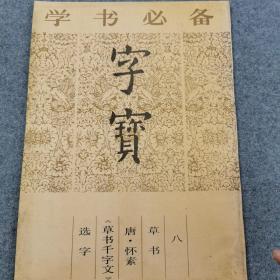 学书必备
字寳
八
草书
唐·怀素
《草书千字文》
选字